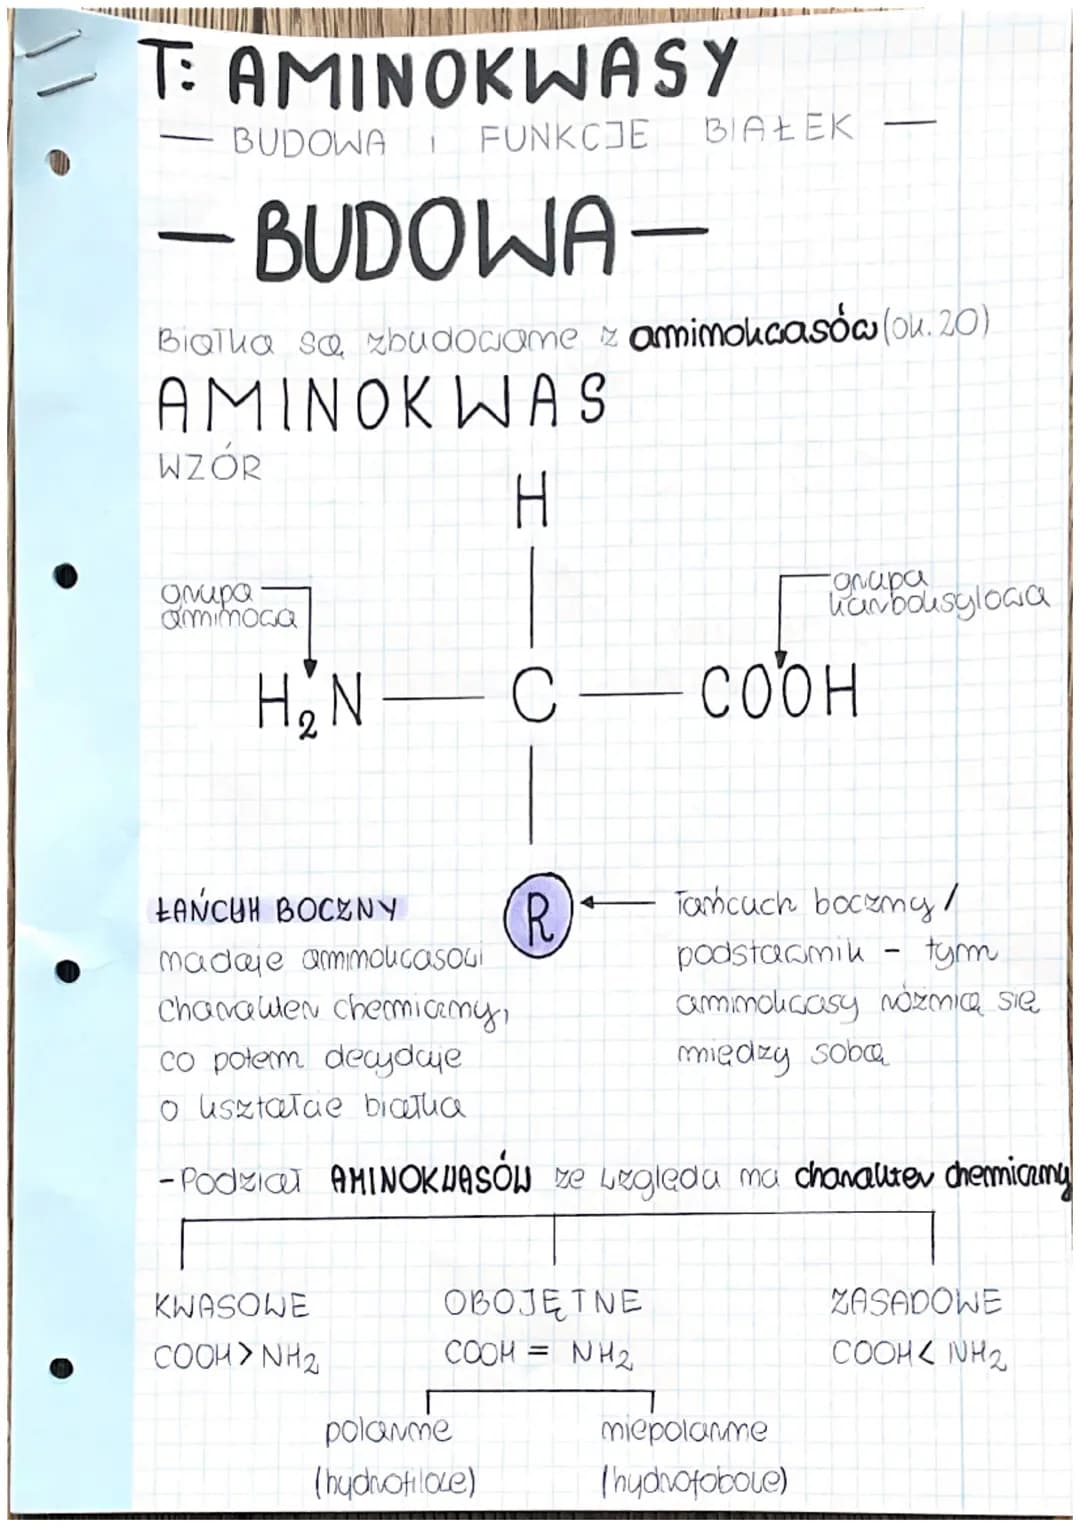 T: AMINOKWASY
— BUDOWA i FUNKCJE BIAŁEK —
— BUDOWA —
Białka są zbudowane z aminokwasów (ok. 20)
AMINOKWAS
WZÓR
H
grupa
aminowa
grupa
karboksylowa
H₂N — C — COOH
R
ŁAŃCUH BOCZNY
nadaje aminokwasowi
charakter chemiczny,
co potem decyduje
o kształcie białka
łańcuch boczny /
podstawnik - tym
aminokwasy różnią się
między sobą
- Podział AMINOKWASÓW ze względu na charakter chemiczny
KWASOWE OBOJĘTNE ZASADOWE
COOH > NH₂ COOH = NH₂ COOH < NH₂
polarne niepolarne
(hydrofilowe) (hydrofobowe)